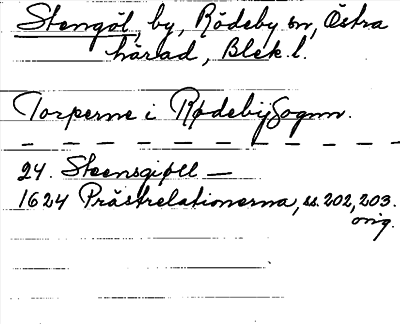 Stengöl, by, Rödeby sn, Östra
härad, Blek. l.
Torperne i Rødeby Sognn.
24. Steensgiøll —
1624 Prästrelationerna, ss. 202, 203.
orig.